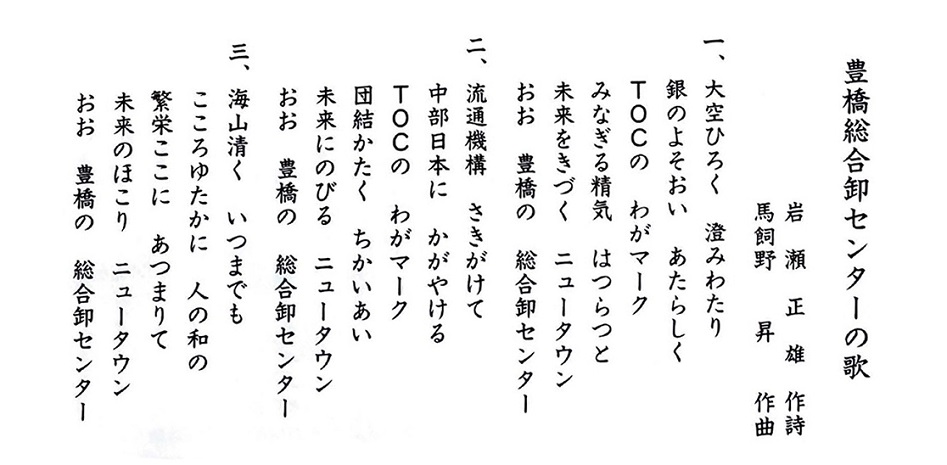 豊橋総合卸センターの歌
岩瀬正雄 作詩
馬飼野昇 作曲
一、大空ひろく 澄みわたり
銀のよそおい あたらしく
TOCの わがマーク
みなぎる精気 はつらつと
未来をきづく ニュータウン
おお 豊橋の 総合卸センター
二、流通機構 さきがけて
中部日本に かがやける
TOCの わがマーク
団結かたく ちかいあい
未来にのびる ニュータウン
おお 豊橋の 総合卸センター
三、海山清く いつまでも
こころゆたかに 人の和の
繁栄ここに あつまりて
未来のほこり ニュータウン
おお 豊橋の 総合卸センター